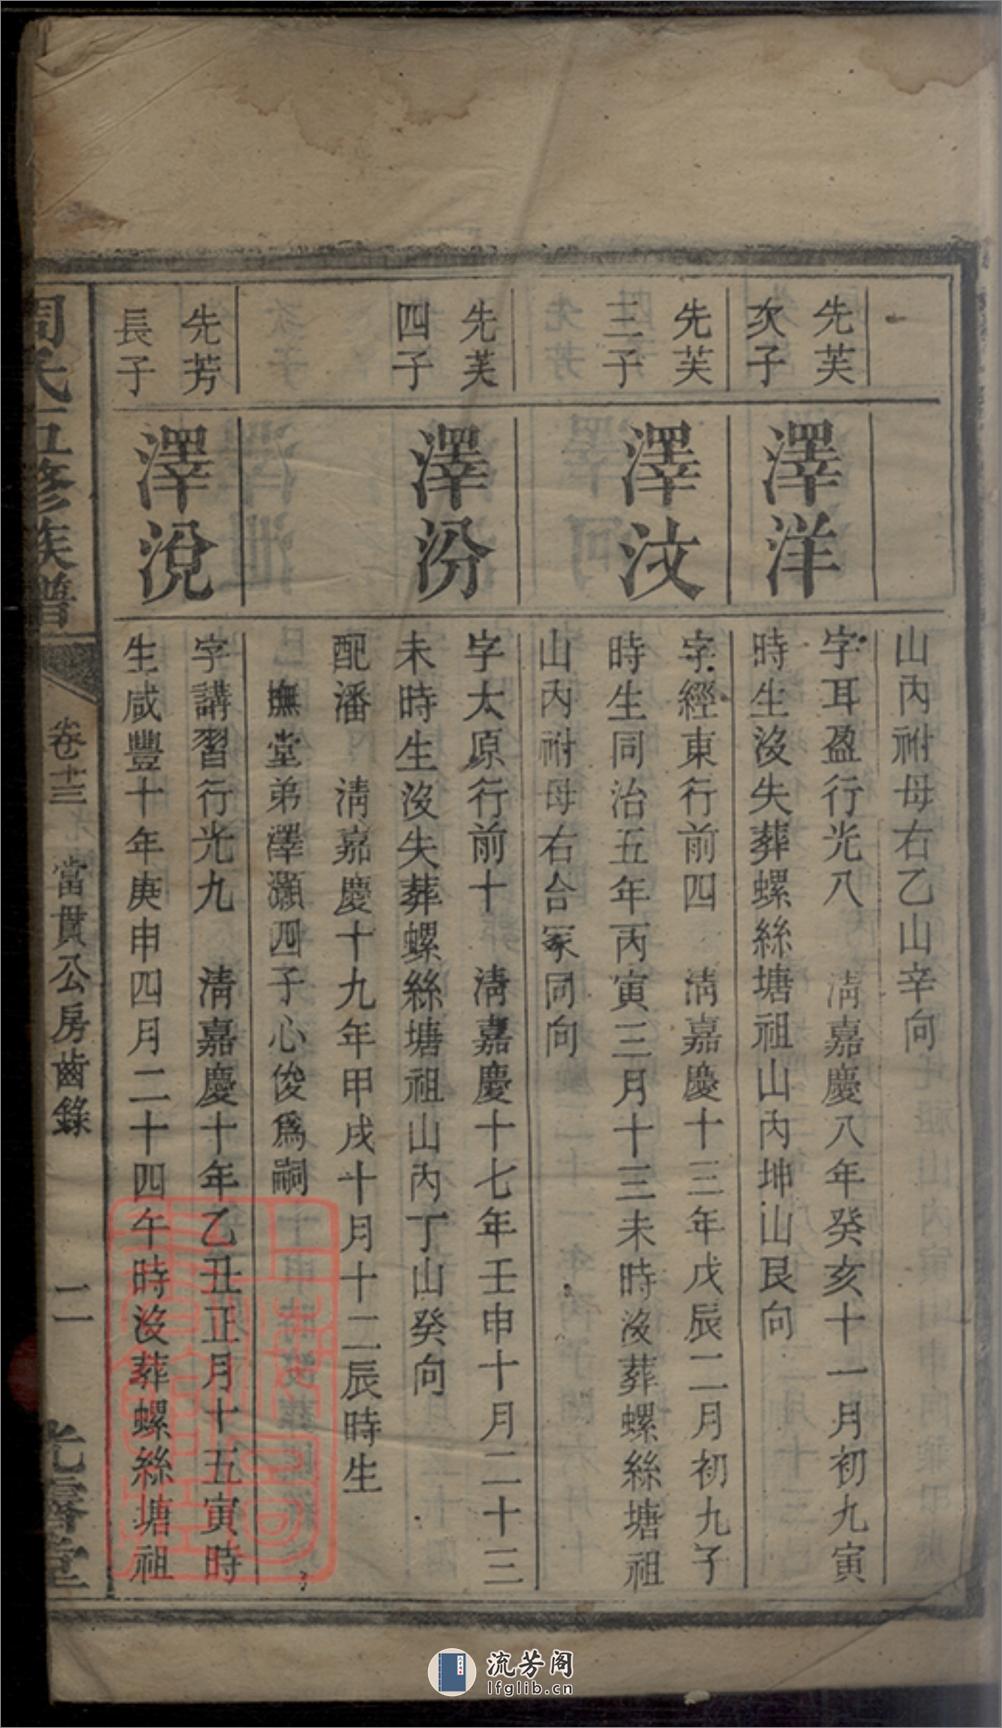 山內祔母右乙山辛向
先芙
次子
澤洋
字耳盈行光八　清嘉慶八年癸亥十一月初九寅
時生沒失葬螺絲塘祖山內坤山艮向
先芙
三子
澤汶
字經東行前四　清嘉慶十三年戊辰二月初九子
時生同治五年丙寅三月十三未時沒葬螺絲塘祖
山內祔母右合冢同向
先芙
四子
澤汾
字太原行前十　清嘉慶十七年壬申十月二十三
未時生沒失葬螺絲塘祖山內丁山癸向
配潘　清嘉慶十九年甲戌十月十二辰時生
撫堂弟澤灝四子心俊爲嗣
先芳
長子
澤涗
字講習行光九　清嘉慶十年乙丑正月十五寅時
生咸豐十年庚申四月二十四午時沒葬螺絲塘祖
周氏五修族譜
卷十三
當貫公房齒錄
二
光霽堂
流芳阁
lfglib.cn